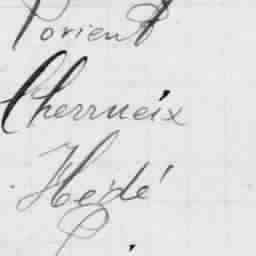 Lorient
Cherrueix
Hédé